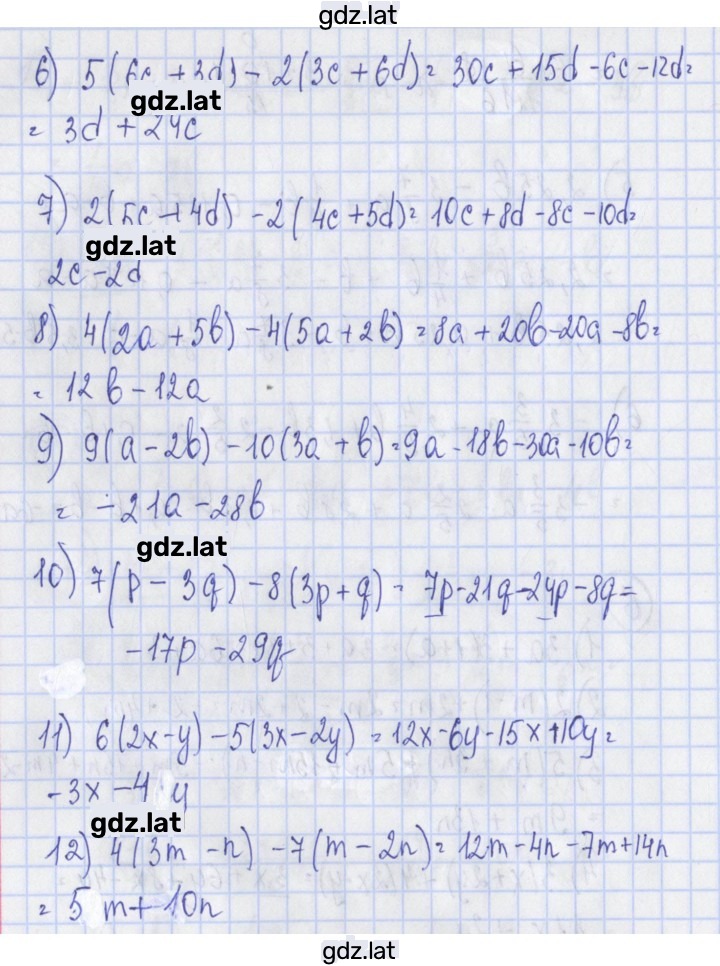 gdz.lat
6) 5(6c + 3d) - 2(3c + 6d) = 30c + 15d - 6c - 12d =
gdz.lat
= 3d + 24c
7) 2(5c + 4d) - 2(4c + 5d) = 10c + 8d - 8c - 10d =
gdz.lat
2c - 2d
8) 4(2a + 5b) - 4(5a + 2b) = 8a + 20b - 20a - 8b =
= 12b - 12a
9) 9(a - 2b) - 10(3a + b) = 9a - 18b - 30a - 10b =
= -21a - 28b
gdz.lat
10) 7(p - 3q) - 8(3p + q) = 7p - 21q - 24p - 8q =
-17p - 29q
11) 6(2x - y) - 5(3x - 2y) = 12x - 6y - 15x + 10y =
-3x - 4 y
gdz.lat
12) 4(3m - n) - 7(m - 2n) = 12m - 4n - 7m + 14n
= 5 m + 10n
gdz.lat